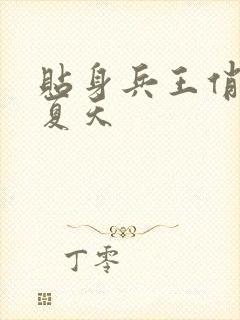 贴身兵王俏
夏天
丁零